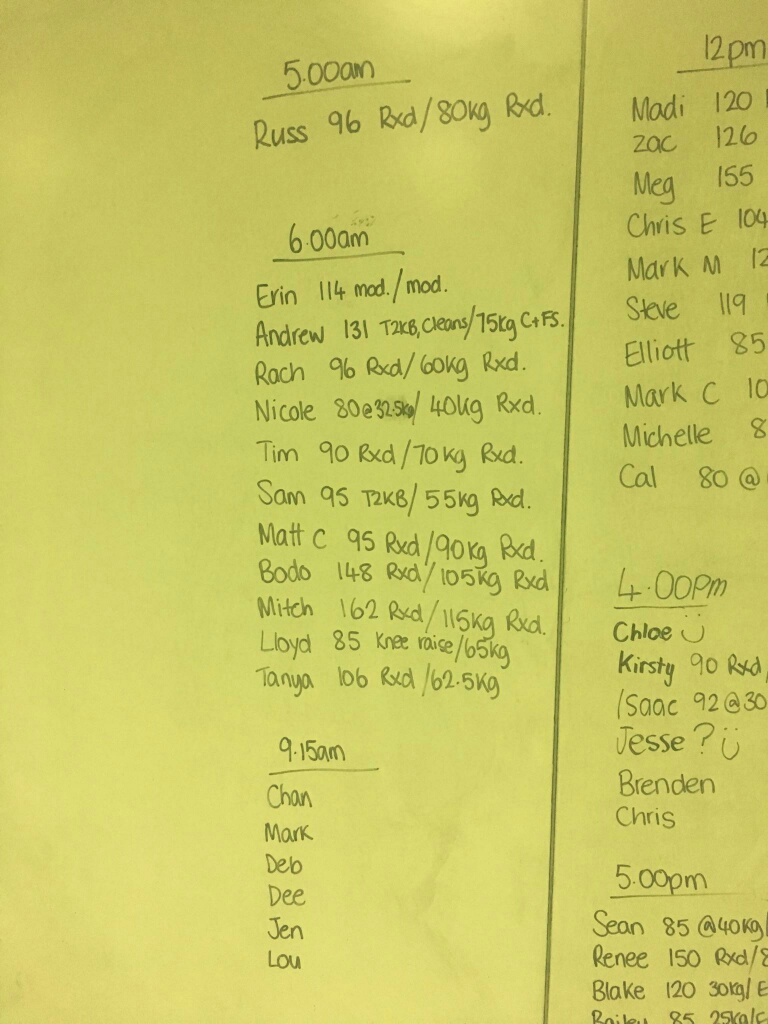 5.00am
Russ 96 Rxd/80kg Rxd.
6.00am
Erin 114 mod./mod.
Andrew 131 T2KB, Cleans/75kg C+FS.
Rach 96 Rxd/60kg Rxd.
Nicole 80@32.5kg/40kg Rxd.
Tim 90 Rxd/70kg Rxd.
Sam 95 T2KB/55kg Rxd.
Matt C 95 Rxd/90kg Rxd.
Bodo 148 Rxd/105kg Rxd
Mitch 162 Rxd/115kg Rxd.
Lloyd 85 knee raise/65kg
Tanya 106 Rxd/62.5kg
9.15am
Chan
Mark
Deb
Dee
Jen
Lou
12pm
Madi 120
Zac 126
Meg 155
Chris E 104
Mark M 12
Steve 119
Elliott 85
Mark C 10
Michelle 8
Cal 80 @
4.00pm
Chloe
Kirsty 90 Rxd/
Isaac 92@30
Jesse ?
Brenden
Chris
5.00pm
Sean 85 @40kg/
Renee 150 Rxd/8
Blake 120 30kg/E
Bailey 85 25kg/